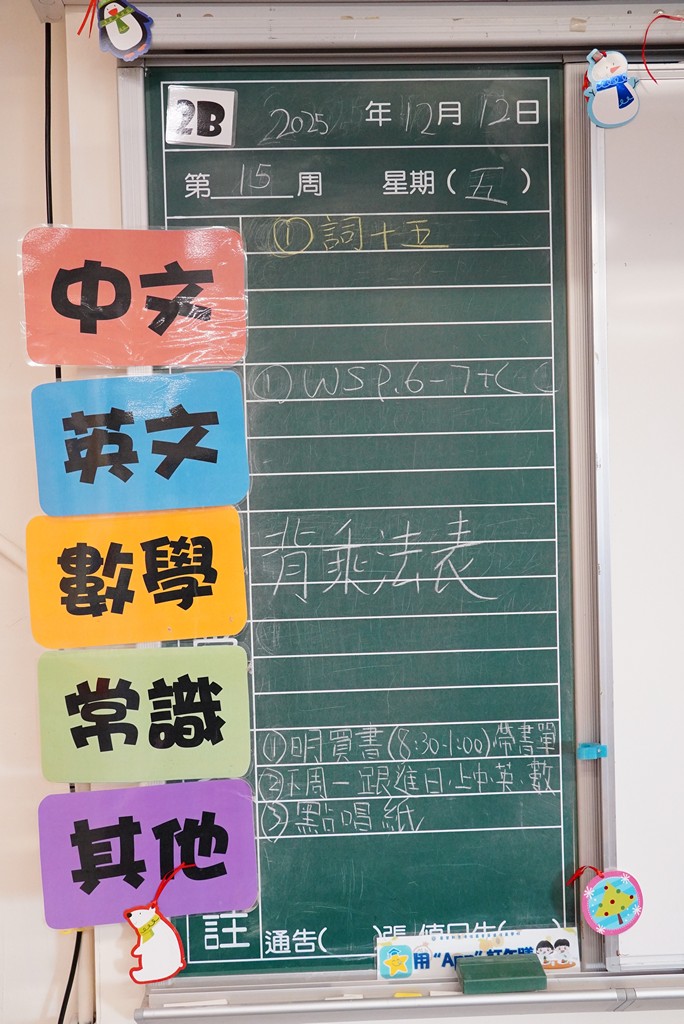 2B 2025 年 12 月 12 日
第 15 周 星期 ( 五 )
中文
① 詞十五
英文
① WSP.6-7+C
數學
背乘法表
常識
其他
① 明買書(8:30-1:00)帶書單
② 下周一跟進日,上中.英.數
③ 點唱紙
註
通告( )張
用 "App"